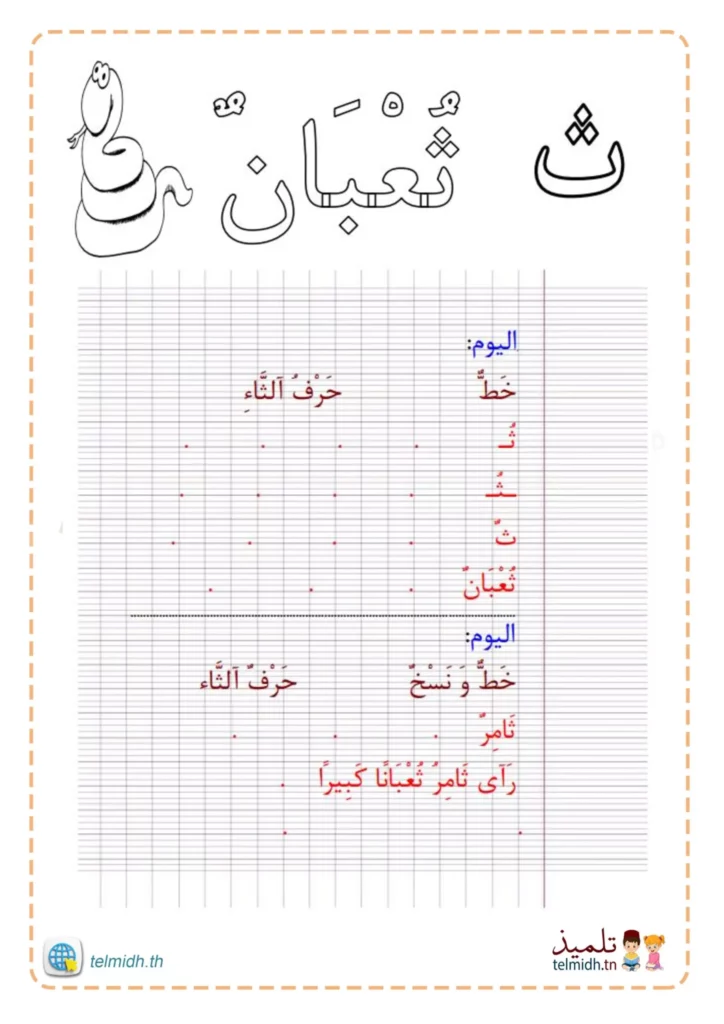 ث ثُعْبَانٌ
اليوم:
خَطٌّ حَرْفُ اَلثَّاءِ
ثُـ . . . .
ـثُـ . . . .
ثٌ . . . .
ثُعْبَانٌ . . .
اليوم:
خَطٌّ وَ نَسْخٌ حَرْفُ اَلثَّاء
ثَامِرٌ . . .
رَآى ثَامِرُ ثُعْبَانًا كَبِيرًا .
. .
telmidh.th
تلميذ
telmidh.tn